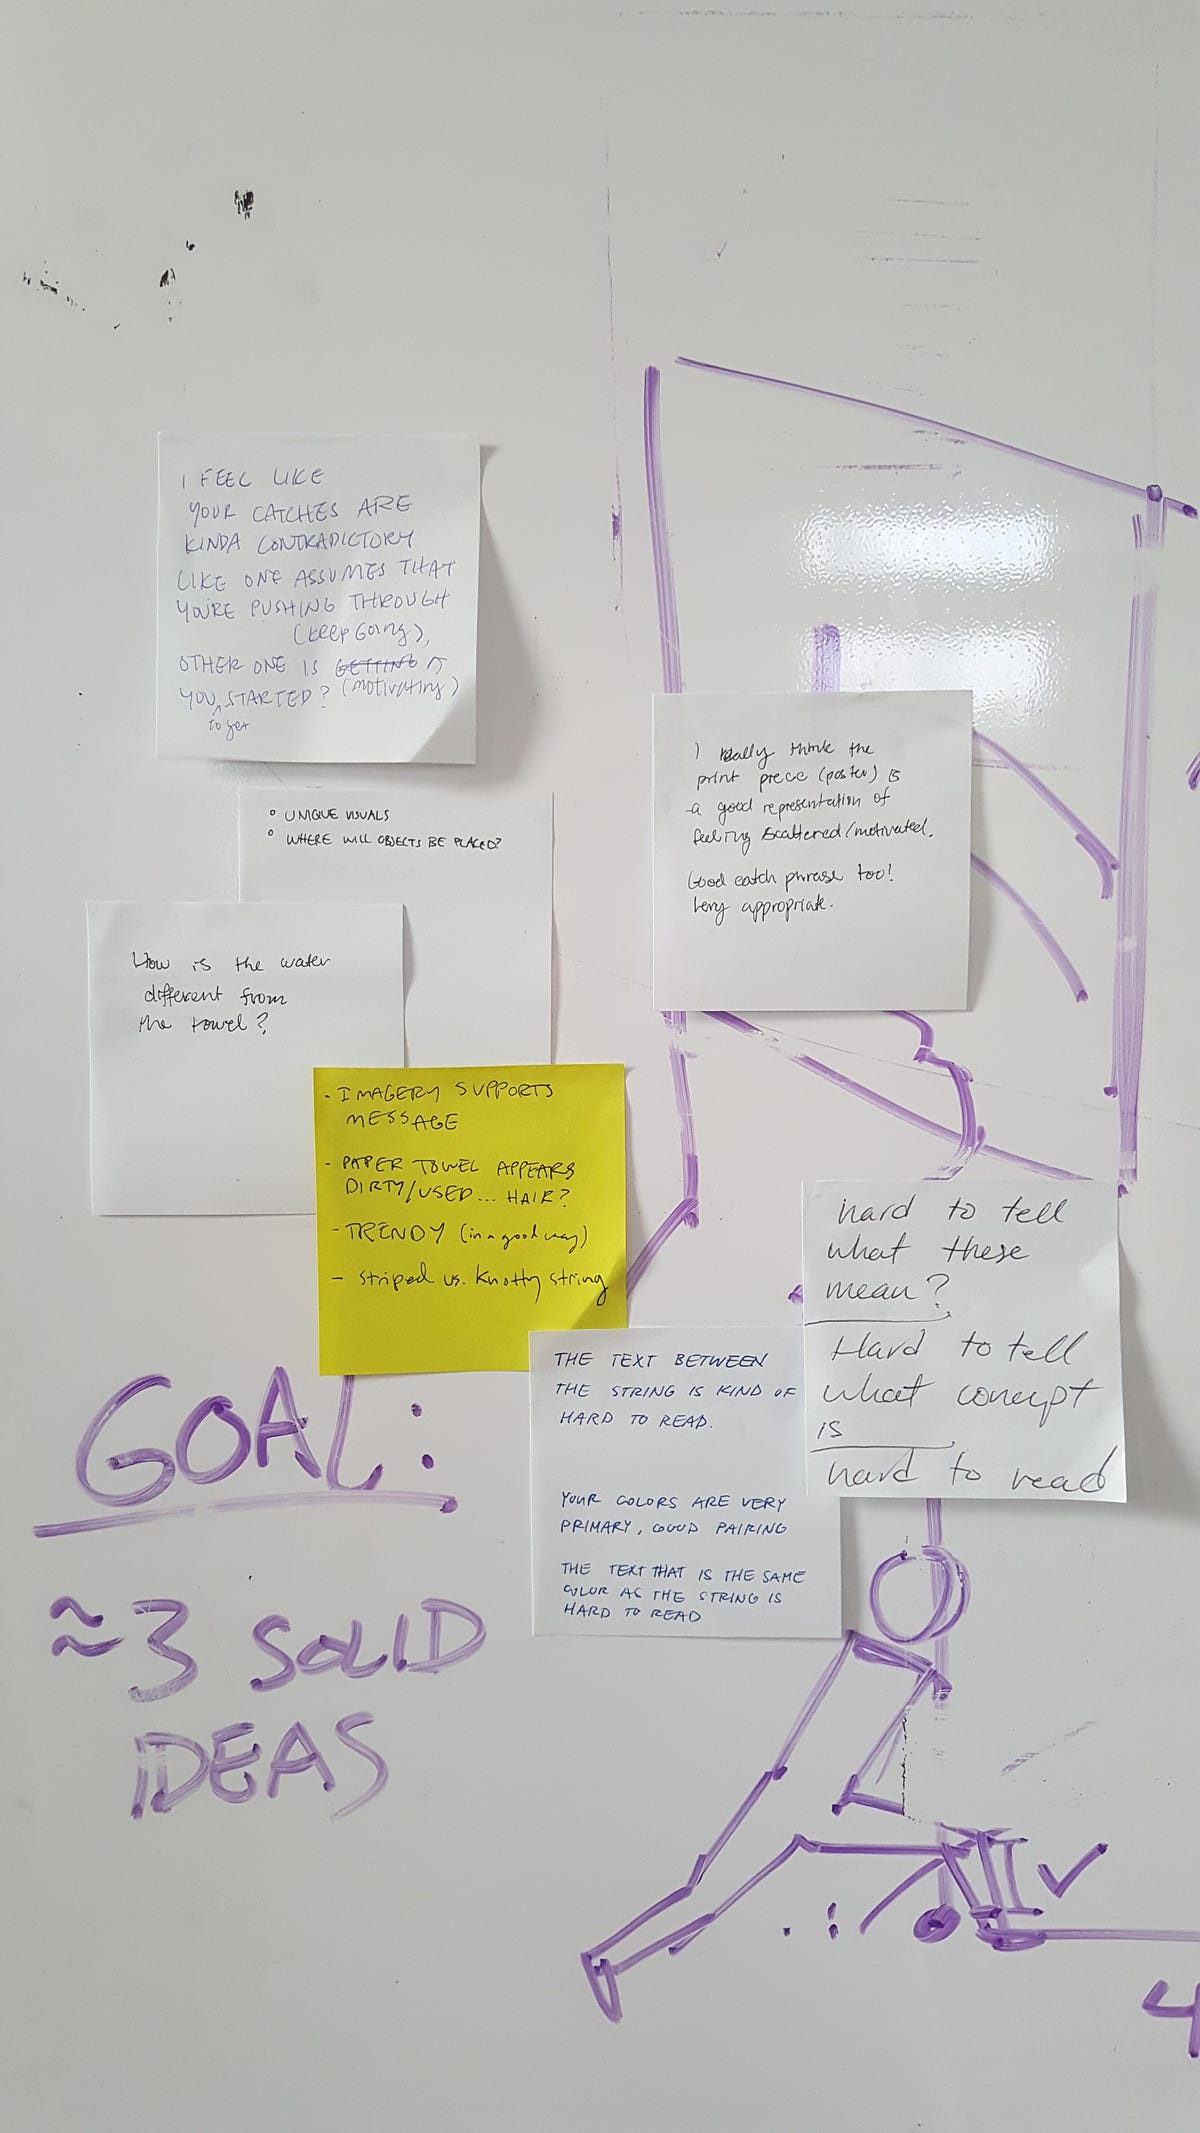 I FEEL LIKE
YOUR CATCHES ARE
KINDA CONTRADICTORY
LIKE ONE ASSUMES THAT
YOU'RE PUSHING THROUGH
(keep Going),
OTHER ONE IS GETTING
YOU STARTED? (motivating)
to get
° UNIQUE VISUALS
° WHERE WILL OBJECTS BE PLACED?
How is the water
different from
the towel?
- IMAGERY SUPPORTS
MESSAGE
- PAPER TOWEL APPEARS
DIRTY/USED... HAIR?
- TRENDY (in a good way)
- Striped vs. Knotty string
I really think the
print piece (poster) is
a good representation of
feeling scattered/motivated.
Good catch phrase too!
Very appropriate.
hard to tell
what these
mean?
Hard to tell
what concept
is
hard to read
THE TEXT BETWEEN
THE STRING IS KIND OF
HARD TO READ.
YOUR COLORS ARE VERY
PRIMARY, GOOD PAIRING
THE TEXT THAT IS THE SAME
COLOR AS THE STRING IS
HARD TO READ
GOAL:
≈3 SOLID
IDEAS
4